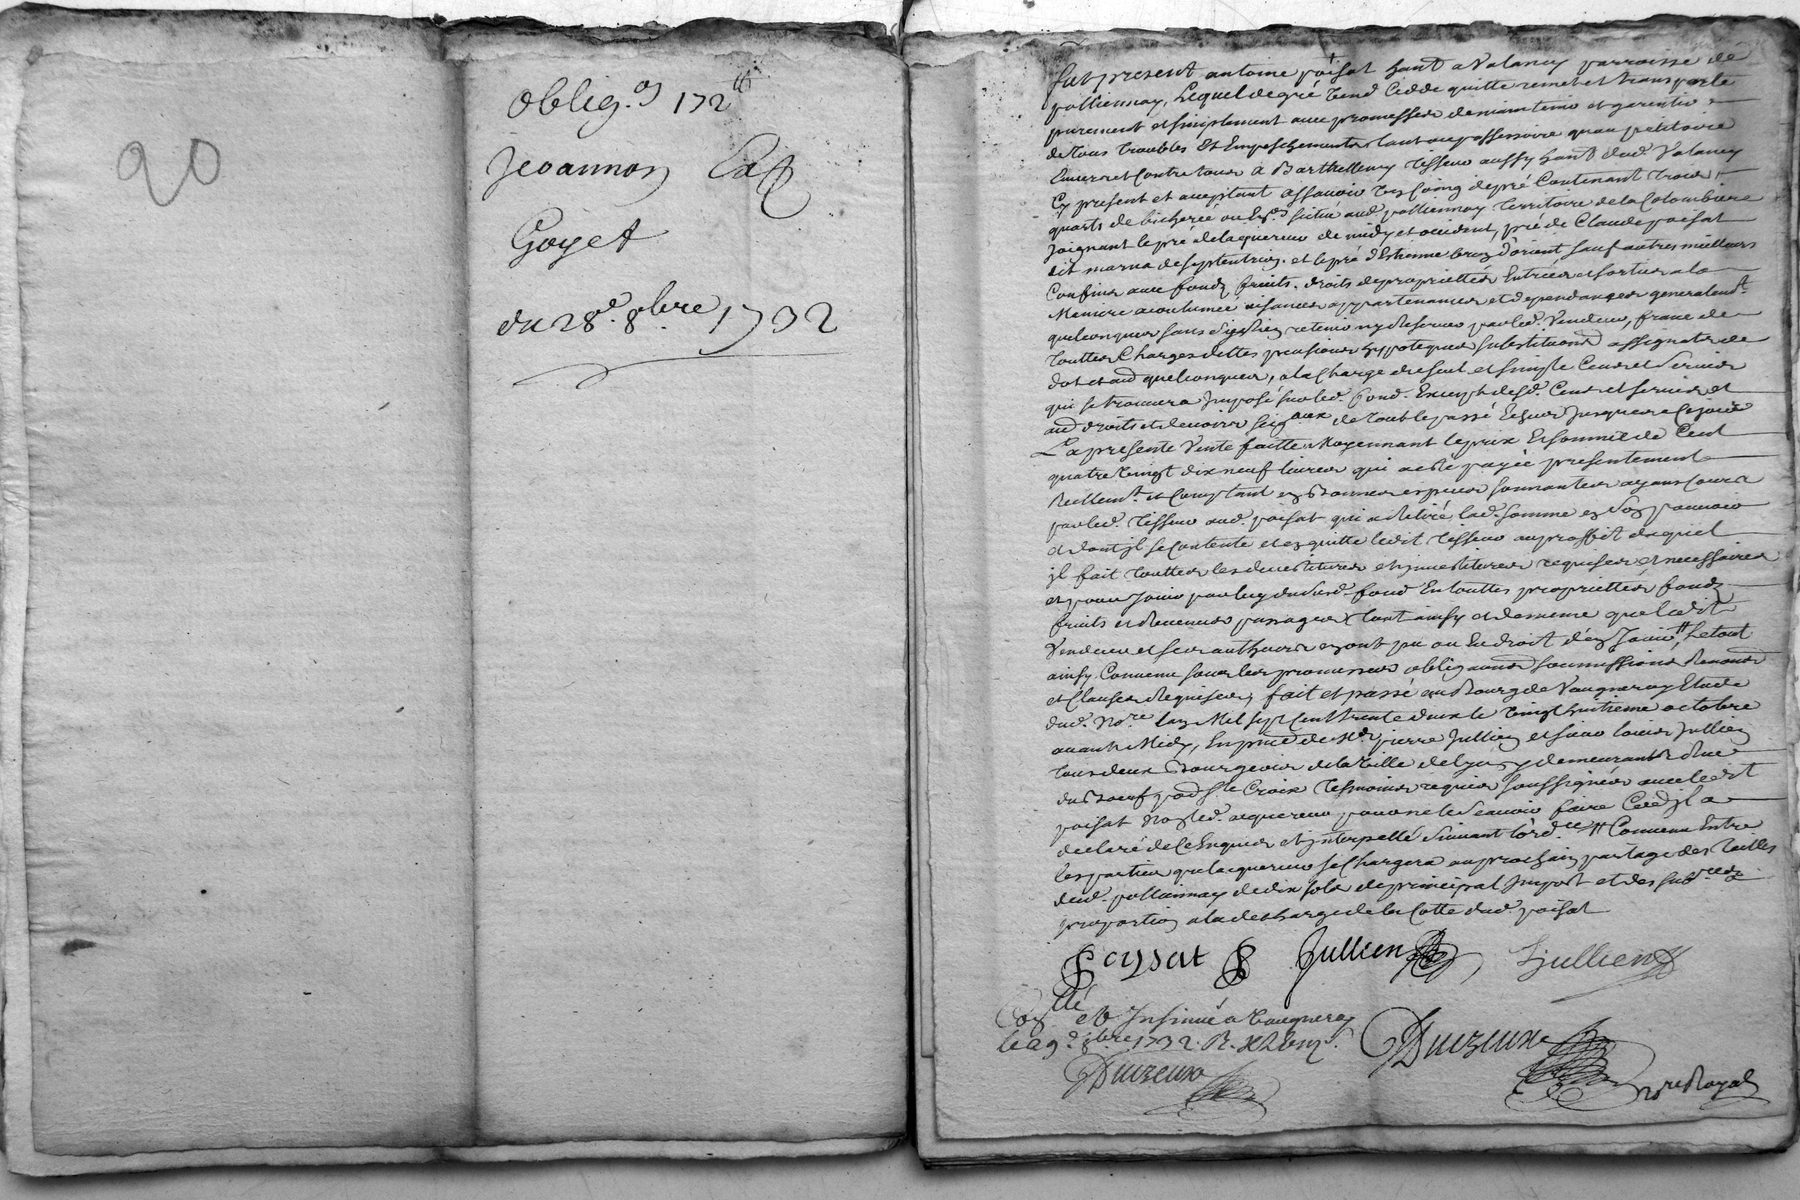 90
Oblig.on 172 tt
Jeoannon
Goyet
du 28e. 8bre 1732
fut present antoine poisat hant a Valancy parroisse de
pollionnay, Lequel de gré vend cedde quitte remet et transporte
purement et simplement avec promesses de maintenir et garentir
de tous troubles Et Empeschements tant au possessoire quau petitoire
Envers et contre tous a Barthellemy Tisseur aussy hant dud. Valancy
Cy present et acceptant assavoir Un Coing de pré Contenant trois
quarts de bicherée ou Eron. situé aud. pollionnay territoire de la Colombiere
Joignant le pré de laquereur de midy et occident, pré de Claude poisat
dit marna de septentrion. et le pré d'Estienne d'orient sauf autres meilleurs
Confins avec fondz fruits. droits de proprietés Entrées et sorties a la
Maniere acoutumée aisances appartenances et dependances generalemt.
quelconques sans s'y rien retenir ny Reserver par led. Vendeur, franc de
touttes Charges dettes pensions hypoteques substitutions assignats de
dot et aud quelconques, a la Charge du seul et simple Cens et Servis
qui se trouvera Imposé sur led. fond. Exempt desd. Cens et servis et
aud droits et devoirs seigaux de tout le passé Echus Jusques a Ce jour
La presente Vente faitte Moyennant le prix Et somme de Cent
quatre vingt dix neuf livres qui a esté payée presentement
Reellemt. et Comptant en Bonnes especes sonnantes ayans Cours
par led. Tisseur aud. poisat qui a Retiré lad. somme en son pouvoir
et dont il se Contente et en quitte ledit Tisseur au proffit duquel
il fait touttes les devestitures et investitures requises et necessaires
et pour Jouir par luy dud. fond En touttes proprietés fonds
fruits et Revenus passages tant ainsy et de meme que ledit
Vendeur et ses autheurs en ont pu ou En droit d'en Jouir, tt Le tout
ainsy Convenu sous les promesses obligaons soumissions Renons
et Clauses Requises, fait et passé au Bourg de Vaugneray Etude
dud. Nore. lan Mil sept Cent trente deux le vingt huitieme octobre
avant Midy, En prnce de Sr pierre Jullien et sieur louis Jullien
tous deux Bourgeois de la Ville de Lyon y demeurants Rue
du Boeuf par. Ste Croix temoins requis soussignés avec ledit
poisat Non led. aquereur pour ne le Scavoir faire Ced il a
declaré de Ce Enquis et interpellé Suivant lord.ce tt Convenu Entre
les parties que laquereur se Chargera au prochain partage des tailles
dud. pollionnay de dix sols de principal Impost et des proportion a la decharge de la Cotte dud. poisat
Poyssat Jullien Ljullien
Conlle et Insinué a Vaugneray
le 29e. 8bre 1732. R.
Duizeux
Duizeux
nore Royal